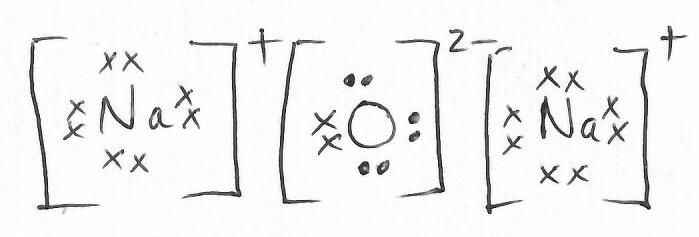 [Na]⁺ [O]²⁻ [Na]⁺